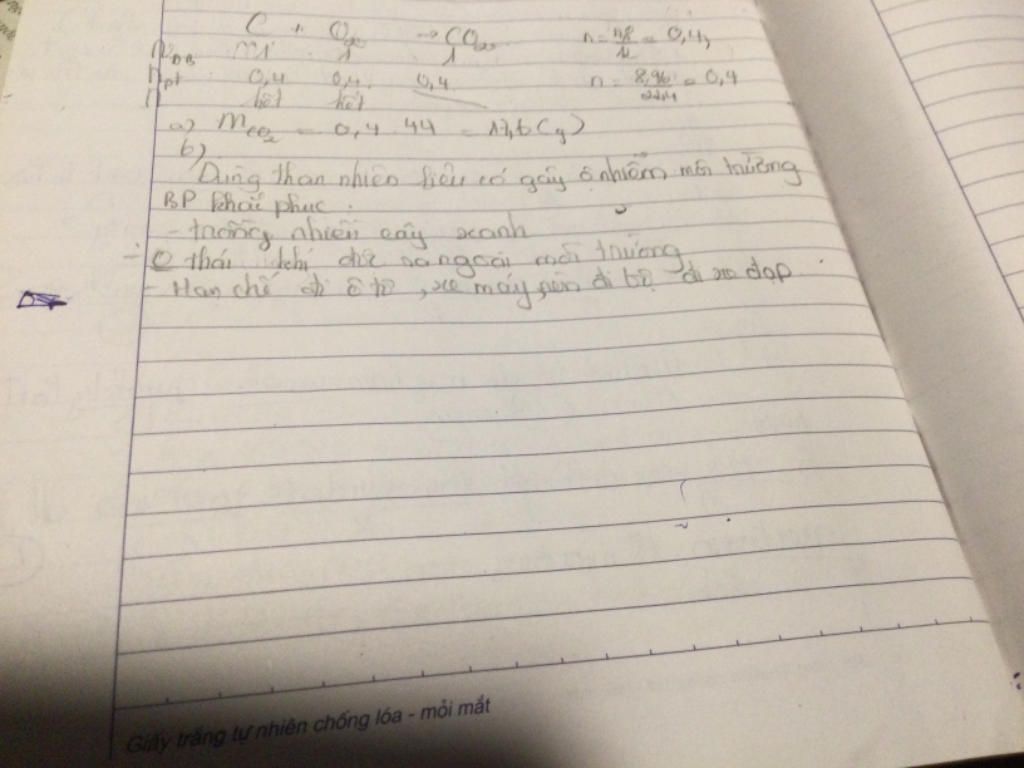 C + O2 → CO2 n = 4,8/12 = 0,4
1 1 1
npt 0,4 0,4 0,4 n = 8,96/22,4 = 0,4
hết hết
a) mCO2 = 0,4 . 44 = 17,6 (g)
b)
Dùng than nhiên liệu có gây ô nhiễm môi trường
BP khắc phục
- trồng nhiều cây xanh
thải khí ra ngoài môi trường
- Hạn chế đi ô tô, xe máy, nên đi bộ đi xe đạp
Giấy trắng tự nhiên chống lóa - mỏi mắt